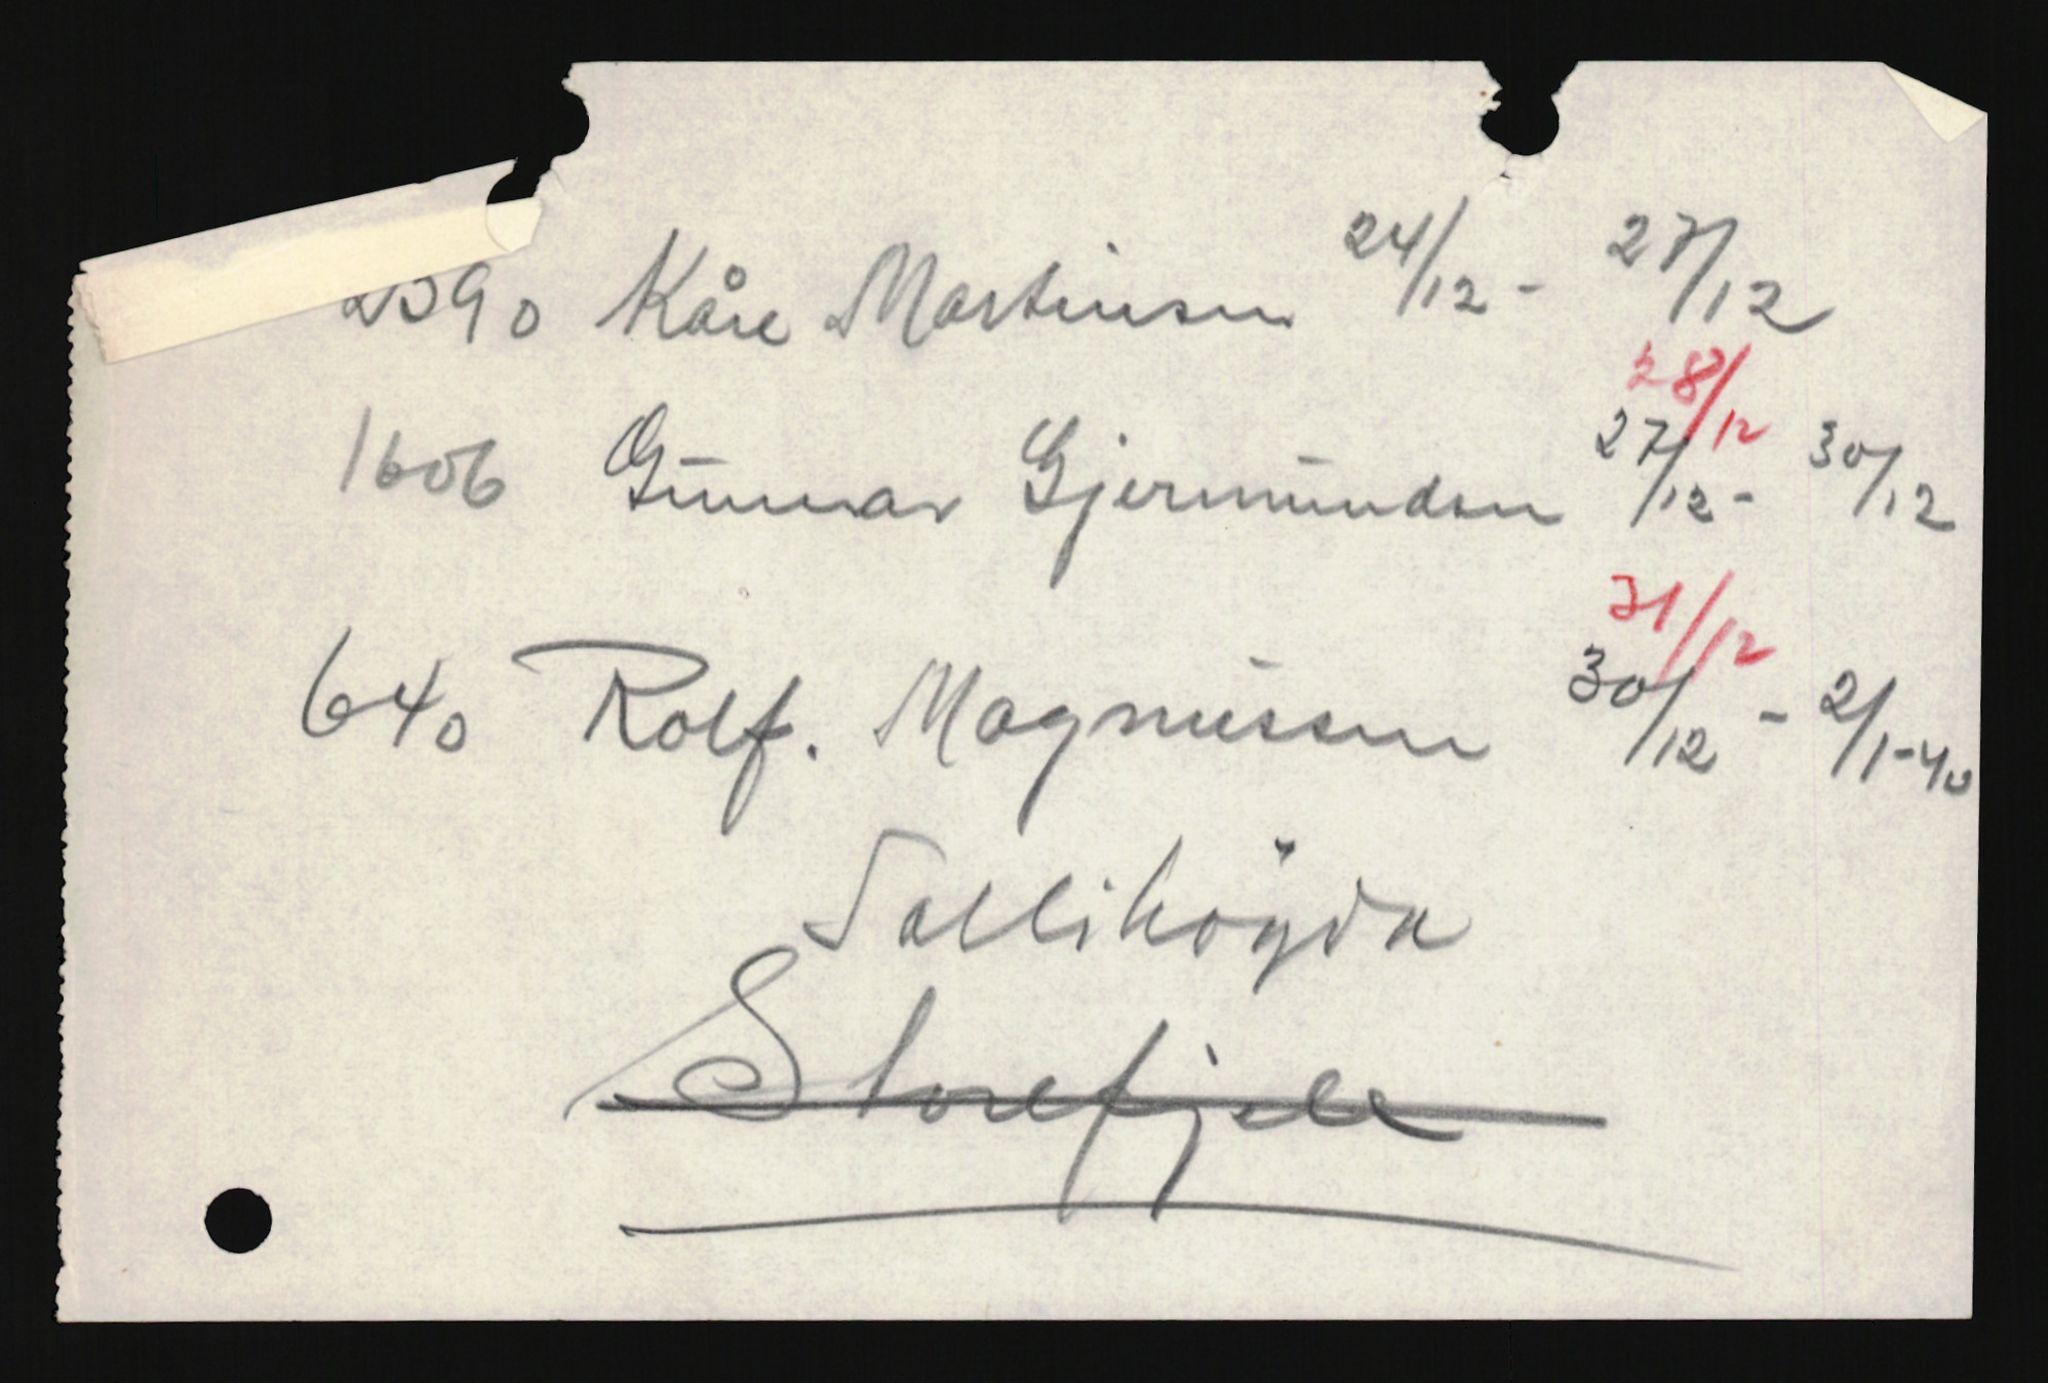 2590 Kåre Martinsen 24/12 - 27/12
28/12
1606 Gunnar Gjermundsen 27/12 - 30/12
31/12
640 Rolf. Magnussen 30/12 - 2/1-40
Sollihøgda
Storefjell